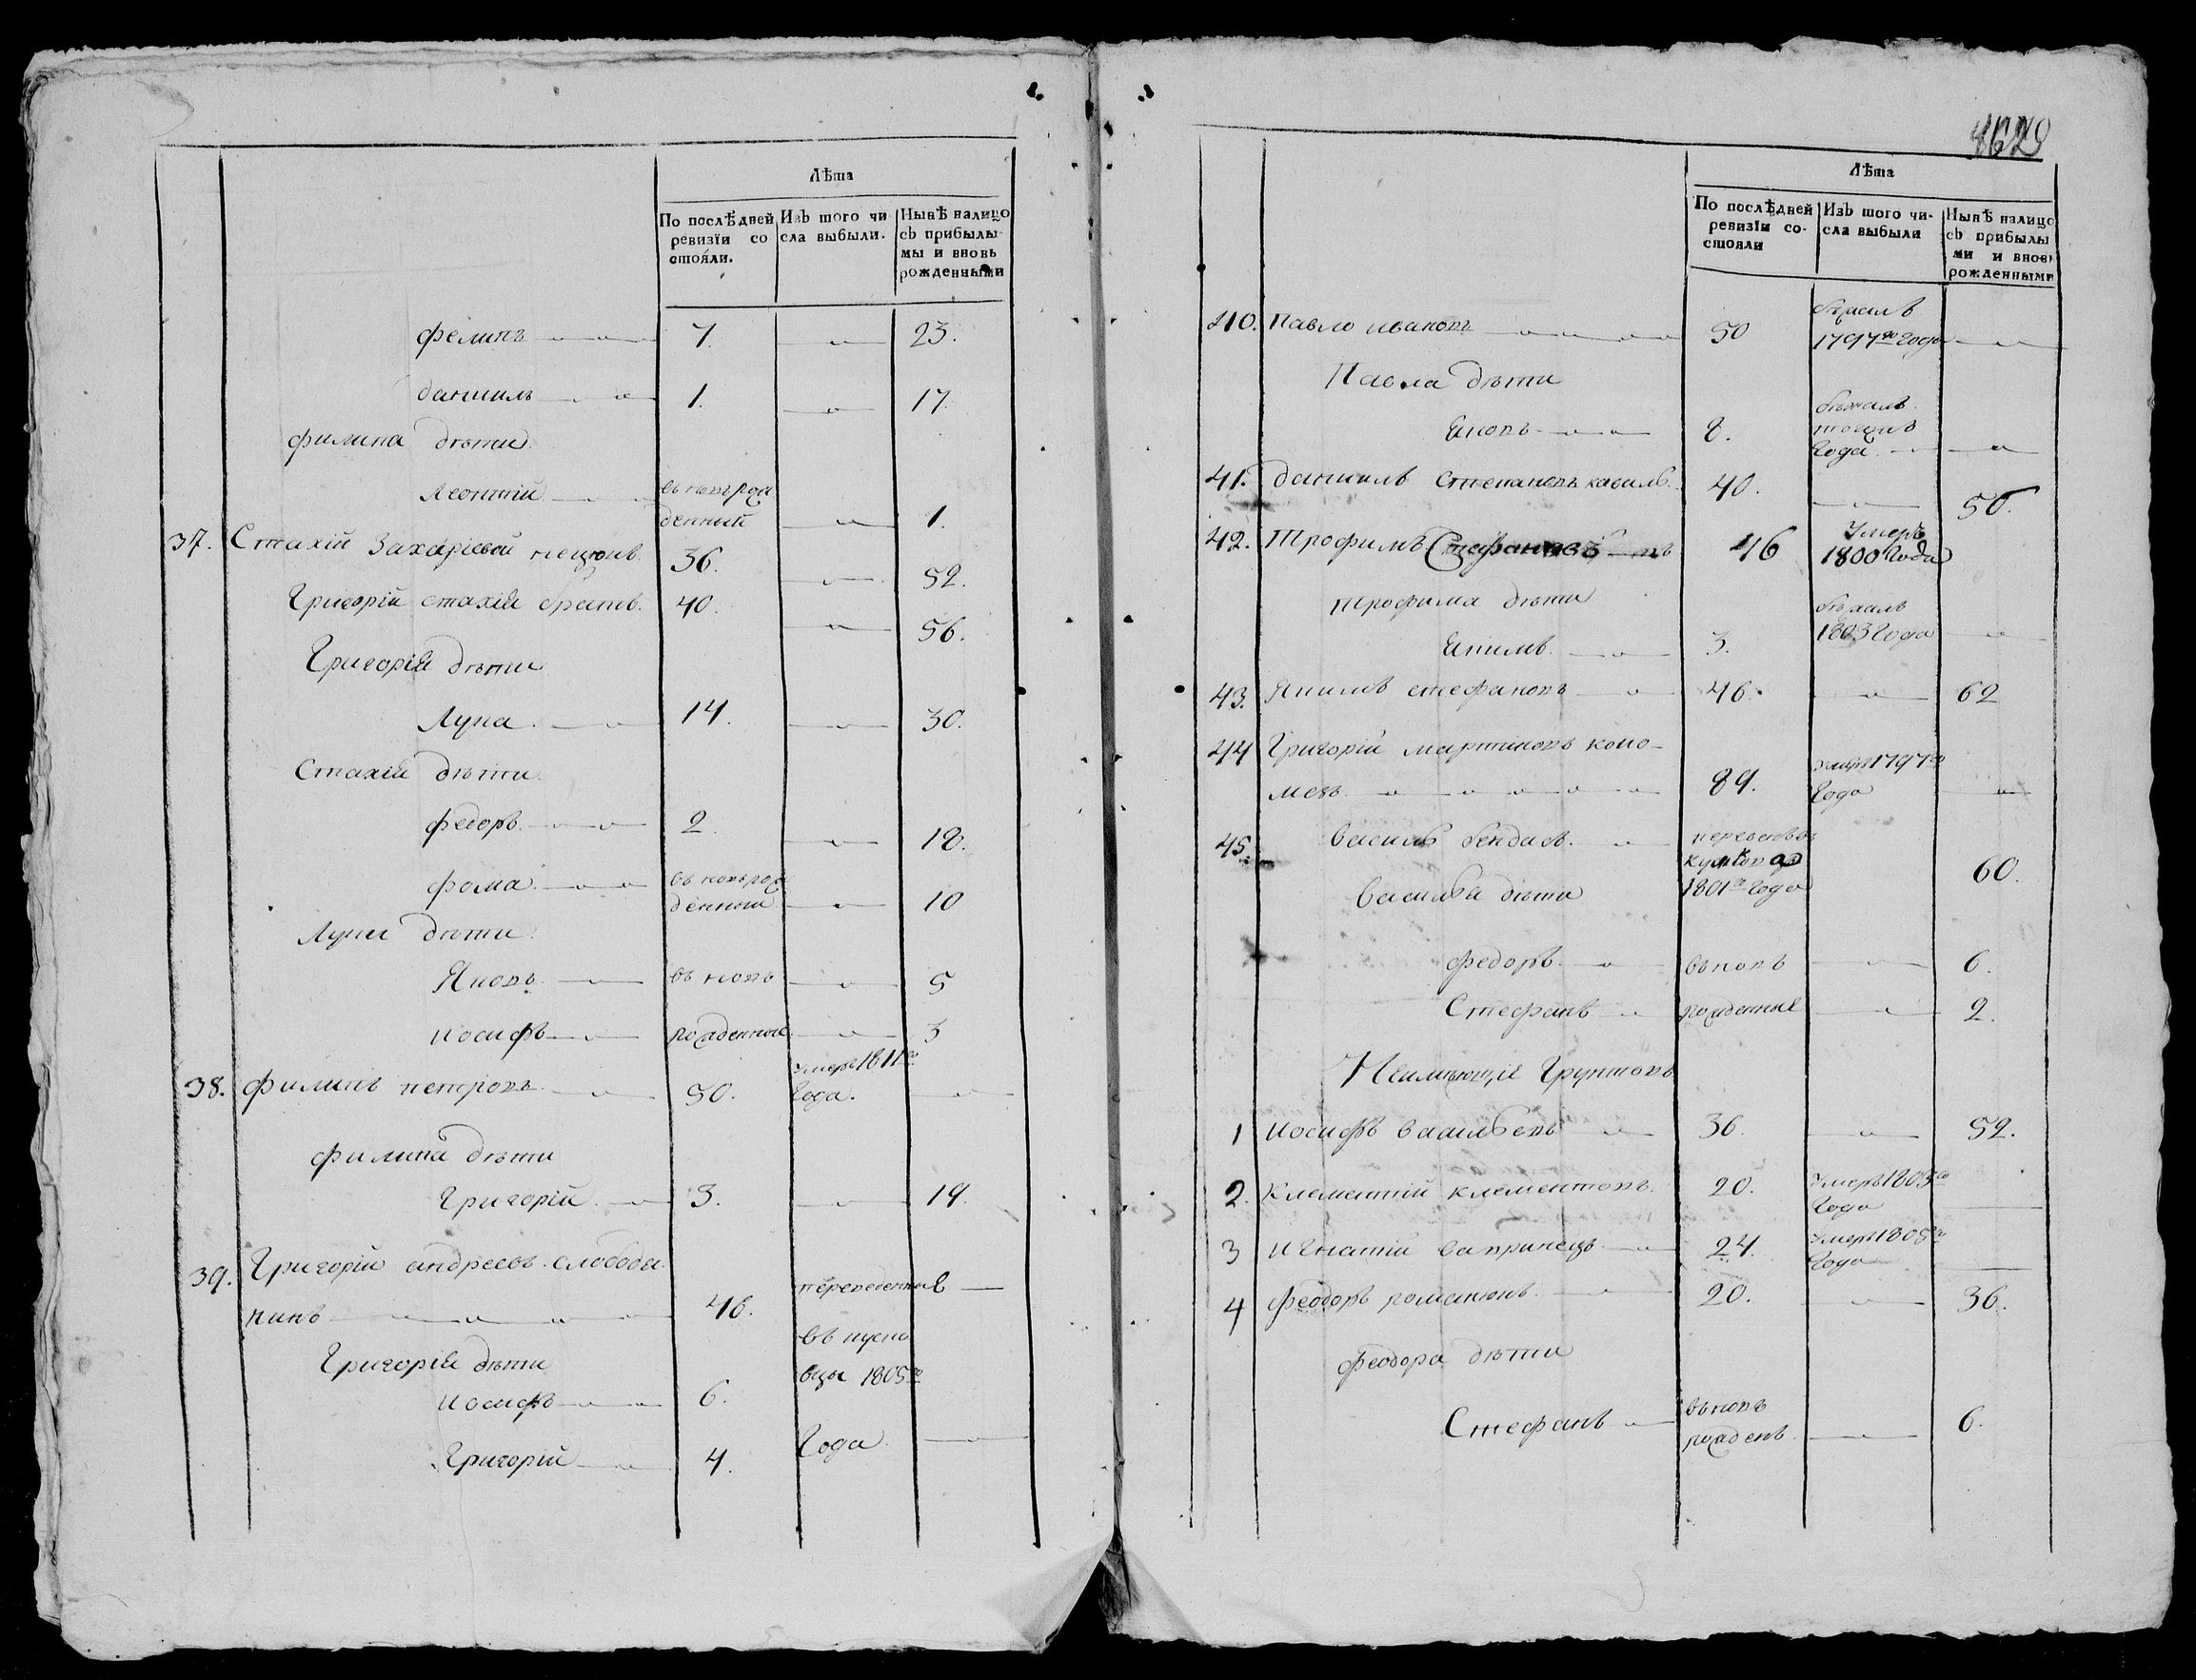 Лѣта
По послѣдней ревизїи состояли.
Изъ того числа выбыли.
Нынѣ налицо съ прибылымы и вновь рожденными
фелипъ 7. 23.
даниилъ 1. 17.
филипа дѣти
Леонтий вновьрожденный 1.
37. Стахій Захарїевой 36. 52.
Григорій стахія братъ. 40. 56.
Григорія дѣти
Лука 14. 30.
Стахія дѣти
федоръ 2. 18.
фома вновьрожденный 10
Луки дѣти
Яковъ вновь 5
иосифъ рожденные 3
38. филипъ петровъ 50. Умеръ 1811го Года.
филипа дѣти
Григорій 3. 19.
39. Григорій андреевъ слобода
нинъ 46. переведенные
Григорія дѣти въ
иосифъ 6. 1805го
Григорій 4. Года
Лѣта
По послѣдней ревизїи состояли
Изъ того числа выбыли
Нынѣ налицо съ прибылыми и вновь рожденными
40. Павло ивановъ 50 бѣжалъ 1797го Года
Павла дѣти
Яковъ 8. бѣжалъ Года
41. даниилъ Степановъ 40. 56.
42. Трофимъ Стефановъ 46 Умеръ 1800 Года
трофима дѣти
Якимъ 3. бѣжалъ 1803 Года
43. Якимъ стефановъ 46. 62
44 Григорій мартиновъ коло-
мель 89. Умеръ 1797го Года
45. василь бендасъ. 1801го Года 60.
василья дѣти
федоръ вновь 6.
Стефанъ рожденные 2.
Неимѣющіе Грунтовъ
1 иосифъ васильевъ 36. 52.
2. Клементій клементовъ 20. Умеръ 1803го Года
3 игнатій 24. Умеръ 1805го Года
4 феодоръ романюкъ 20. 36.
феодора дѣти
Стефанъ вновь рожденъ 6.